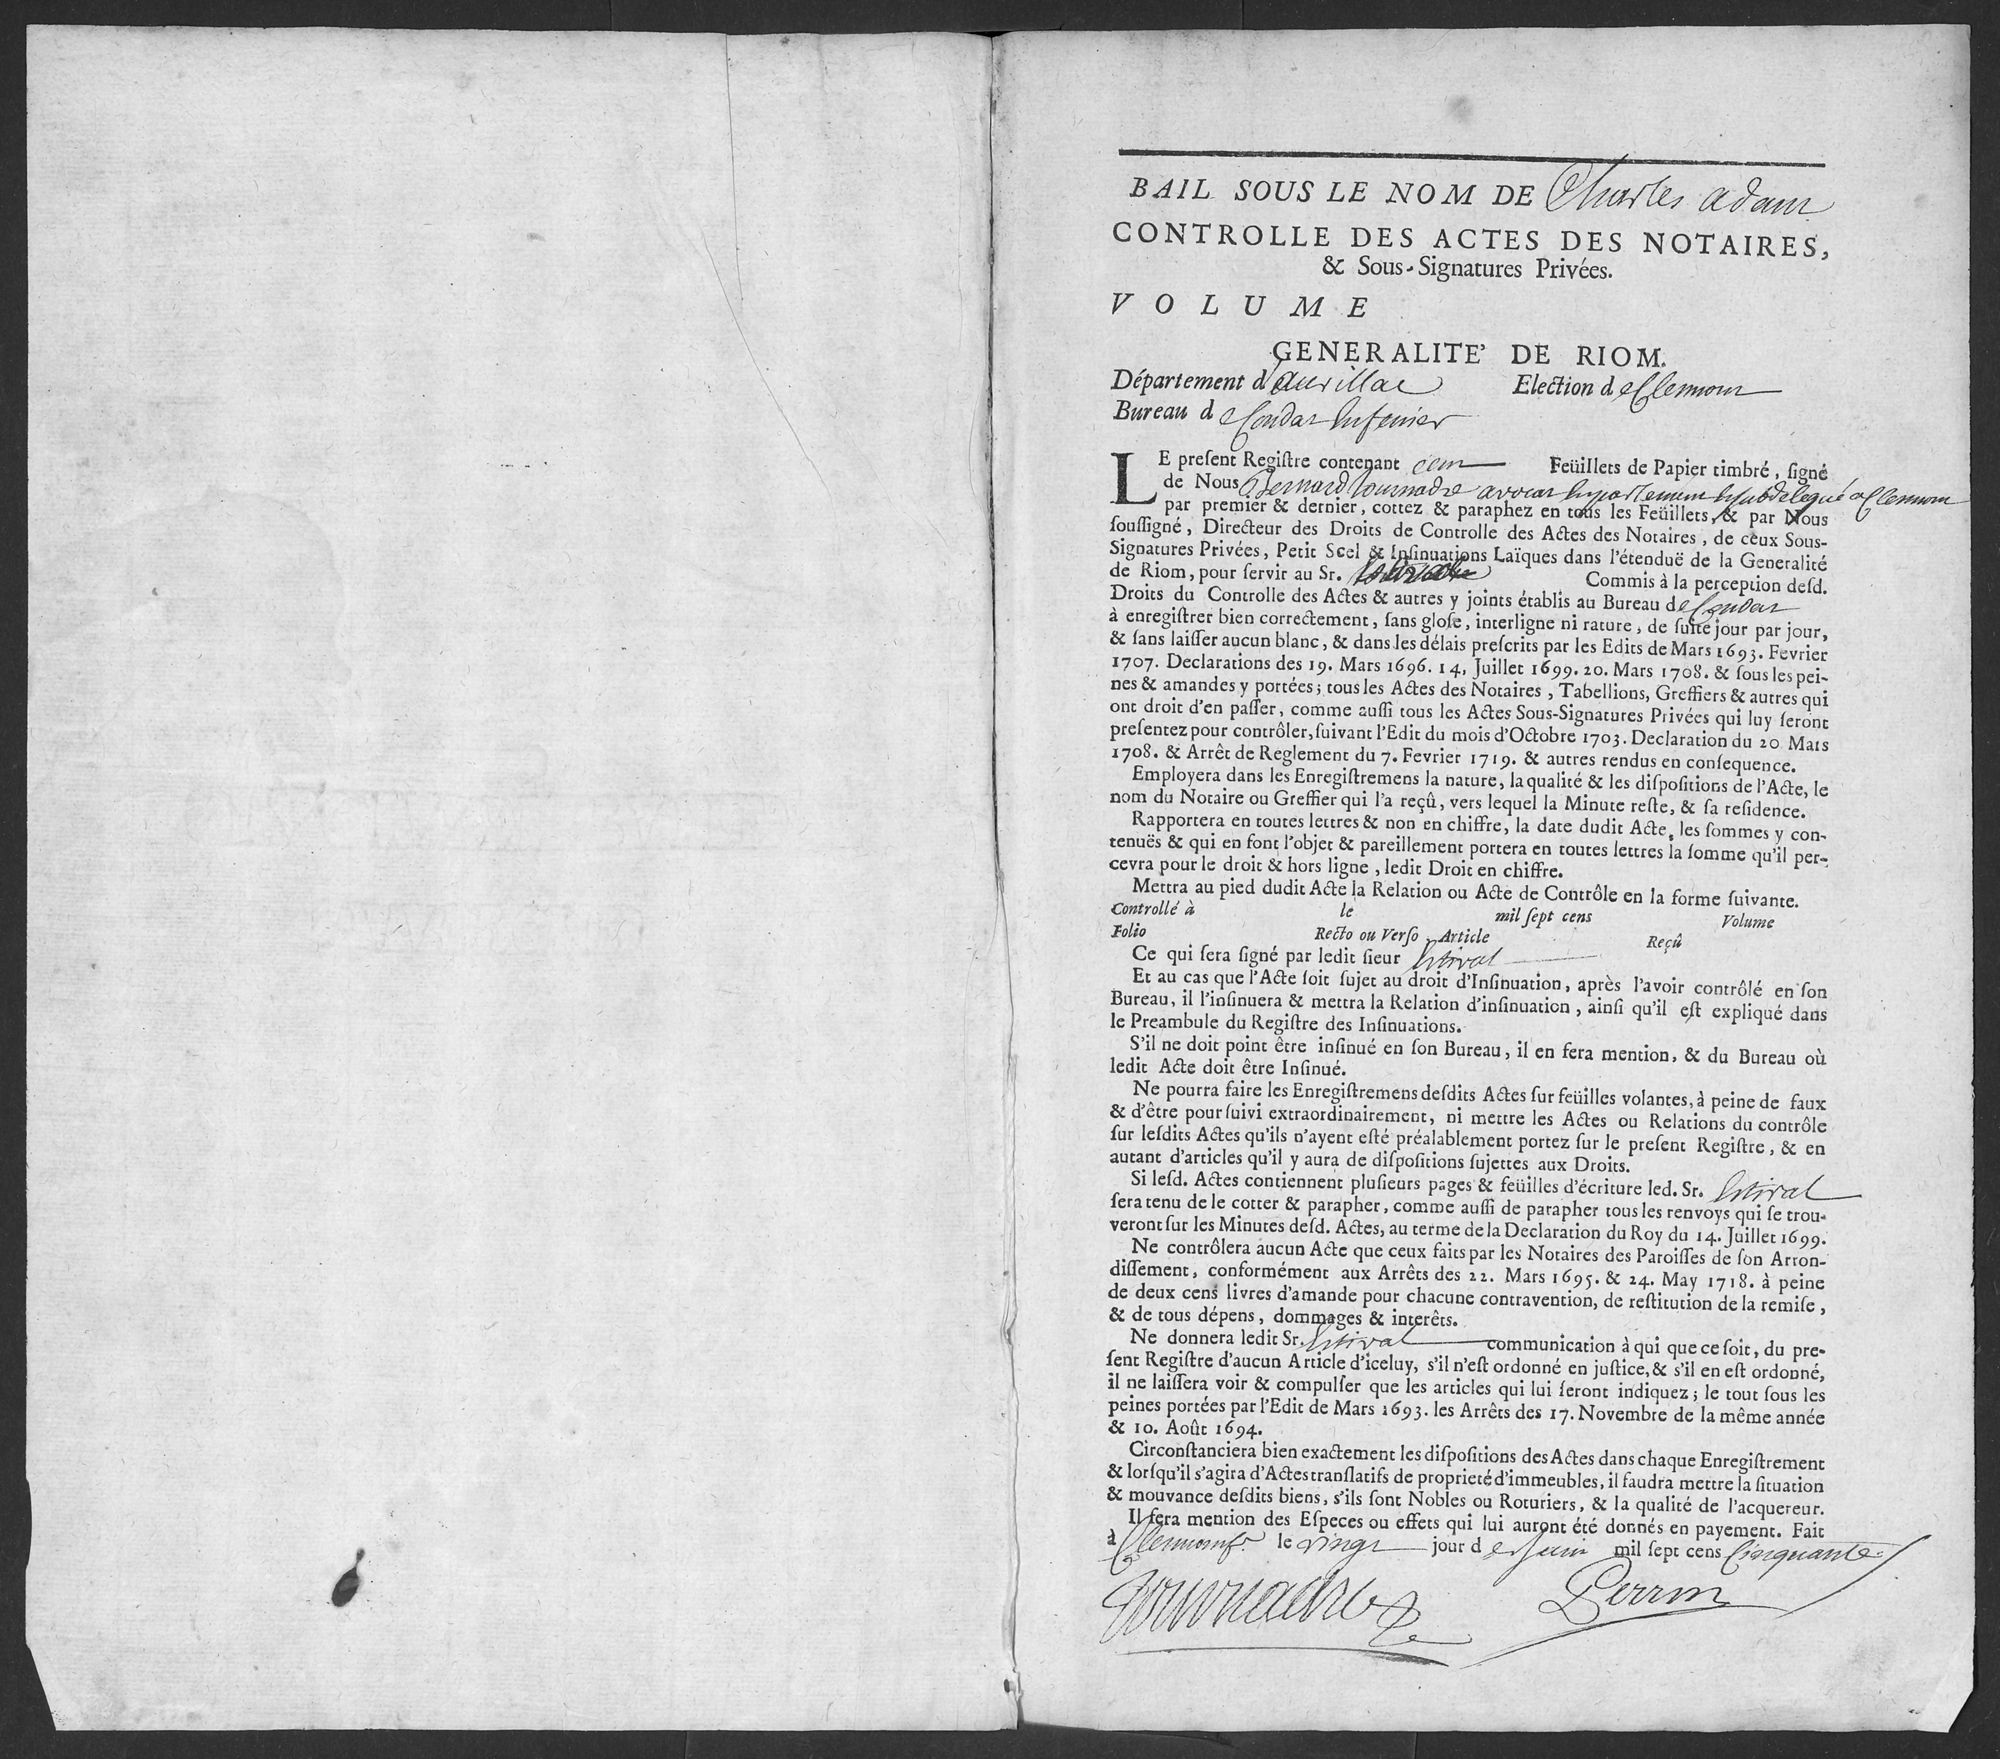 BAIL SOUS LE NOM DE Charles adam
CONTROLLE DES ACTES DES NOTAIRES,
& Sous-Signatures Privées.
VOLUME
GENERALITE' DE RIOM.
Département d'aurillac Election de Clermont
Bureau de Condat
LE preſent Regiſtre contenant cent Feüillets de Papier timbré, ſigné
de Nous Bernard tournadre avocat en parlement subdelegué a Clermont
par premier & dernier, cottez & paraphez en tous les Feüillets, & par Nous
ſouſſigné, Directeur des Droits de Controlle des Actes des Notaires, de ceux Sous-
Signatures Privées, Petit Scel & Inſinuations Laïques dans l'étenduë de la Generalité
de Riom, pour ſervir au Sr. Commis à la perception deſd.
Droits du Controlle des Actes & autres y joints établis au Bureau de Condat
à enregiſtrer bien correctement, ſans gloſe, interligne ni rature, de ſuite jour par jour,
& ſans laiſſer aucun blanc, & dans les délais preſcrits par les Edits de Mars 1693. Fevrier
1707. Declarations des 19. Mars 1696. 14. Juillet 1699. 20. Mars 1708. & ſous les pei-
nes & amandes y portées; tous les Actes des Notaires, Tabellions, Greffiers & autres qui
ont droit d'en paſſer, comme auſſi tous les Actes Sous-Signatures Privées qui luy ſeront
preſentez pour contrôler, ſuivant l'Edit du mois d'Octobre 1703. Declaration du 20 Mars
1708. & Arrêt de Reglement du 7. Fevrier 1719. & autres rendus en conſequence.
Employera dans les Enregiſtremens la nature, la qualité & les diſpoſitions de l'Acte, le
nom du Notaire ou Greffier qui l'a reçû, vers lequel la Minute reſte, & ſa reſidence.
Rapportera en toutes lettres & non en chiffre, la date dudit Acte, les ſommes y con-
tenuës & qui en font l'objet & pareillement portera en toutes lettres la ſomme qu'il per-
cevra pour le droit & hors ligne, ledit Droit en chiffre.
Mettra au pied dudit Acte la Relation ou Acte de Contrôle en la forme ſuivante.
Controllé à le mil ſept cens Volume
Folio Recto ou Verſo Article Reçû
Ce qui ſera ſigné par ledit ſieur Estival
Et au cas que l'Acte ſoit ſujet au droit d'Inſinuation, après l'avoir contrôlé en ſon
Bureau, il l'inſinuera & mettra la Relation d'inſinuation, ainſi qu'il eſt expliqué dans
le Preambule du Regiſtre des Inſinuations.
S'il ne doit point être inſinué en ſon Bureau, il en fera mention, & du Bureau où
ledit Acte doit être Inſinué.
Ne pourra faire les Enregiſtremens deſdits Actes ſur feüilles volantes, à peine de faux
& d'être pourſuivi extraordinairement, ni mettre les Actes ou Relations du contrôle
ſur leſdits Actes qu'ils n'ayent eſté préalablement portez ſur le preſent Regiſtre, & en
autant d'articles qu'il y aura de diſpoſitions ſujettes aux Droits.
Si leſd. Actes contiennent pluſieurs pages & feüilles d'écriture led. Sr. Estival
ſera tenu de le cotter & parapher, comme auſſi de parapher tous les renvoys qui ſe trou-
veront ſur les Minutes deſd. Actes, au terme de la Declaration du Roy du 14. Juillet 1699.
Ne contrôlera aucun Acte que ceux faits par les Notaires des Paroiſſes de ſon Arron-
diſſement, conformément aux Arrêts des 22. Mars 1695. & 24. May 1718. à peine
de deux cens livres d'amande pour chacune contravention, de reſtitution de la remiſe,
& de tous dépens, dommages & interêts.
Ne donnera ledit Sr. Estival communication à qui que ce ſoit, du pre-
ſent Regiſtre d'aucun Article d'iceluy, s'il n'eſt ordonné en juſtice, & s'il en eſt ordonné,
il ne laiſſera voir & compulſer que les articles qui lui ſeront indiquez; le tout ſous les
peines portées par l'Edit de Mars 1693. les Arrêts des 17. Novembre de la même année
& 10. Août 1694.
Circonſtanciera bien exactement les diſpoſitions des Actes dans chaque Enregiſtrement
& lorſqu'il s'agira d'Actes tranſlatifs de proprieté d'immeubles, il faudra mettre la ſituation
& mouvance deſdits biens, s'ils ſont Nobles ou Roturiers, & la qualité de l'acquereur.
Il fera mention des Eſpeces ou effets qui lui auront été donnés en payement. Fait
à Clermont le vingt jour de Juin mil ſept cens Cinquante
Tournadre Perrin